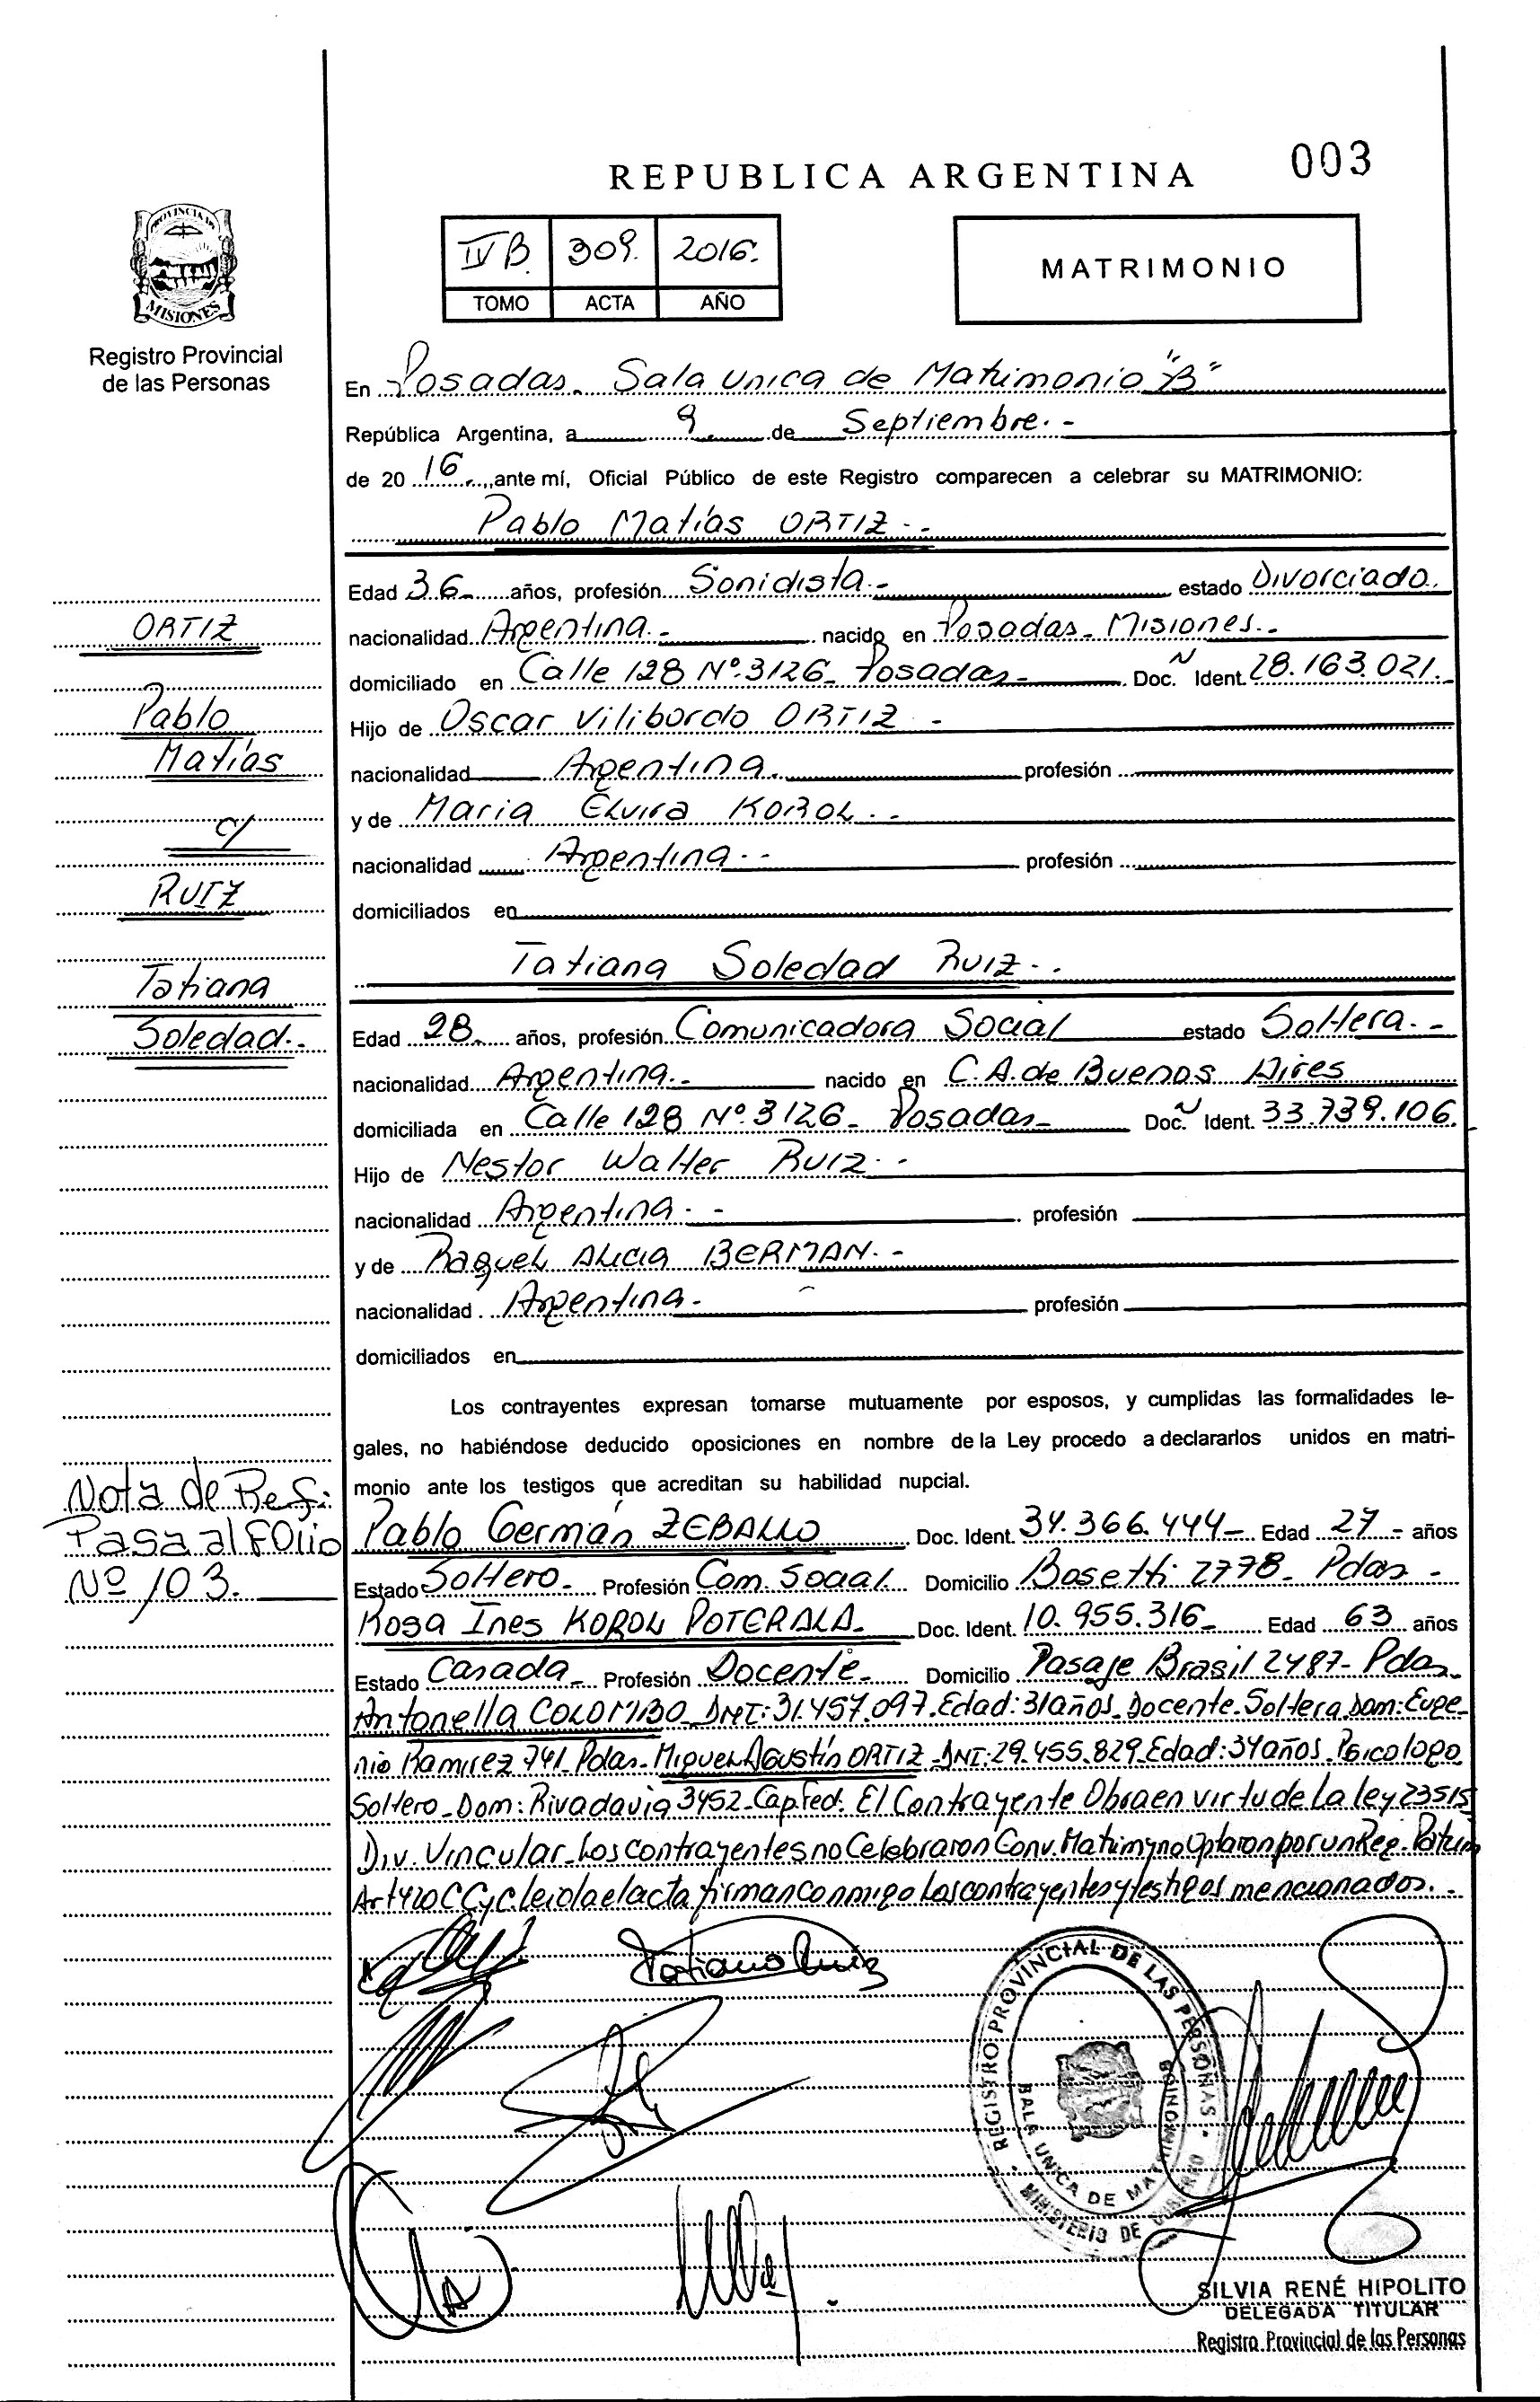 REPUBLICA ARGENTINA
003
PROVINCIA DE
MISIONES
Registro Provincial
de las Personas
IV B. 309. 2016.
TOMO ACTA AÑO
MATRIMONIO
En Posadas. Sala Unica de Matrimonio "B"
República Argentina, a 9 de Septiembre.-
de 20 16., ante mí, Oficial Público de este Registro comparecen a celebrar su MATRIMONIO:
Pablo Matías ORTIZ.-
Edad 36 años, profesión Sonidista.- estado Divorciado.
nacionalidad Argentina.- nacido en Posadas- Misiones.-
domiciliado en Calle 128 Nº.3126- Posadas- Doc. N Ident. 28.163.021.
Hijo de Oscar Vilibordo ORTIZ.-
nacionalidad Argentina. profesión
y de Maria Elvira KOROL.-
nacionalidad Argentina.- profesión
domiciliados en
Tatiana Soledad Ruiz.-
Edad 28. años, profesión Comunicadora Social estado Soltera.-
nacionalidad Argentina.- nacido en C.A. de Buenos Aires
domiciliada en Calle 128 Nº.3126- Posadas- Doc. N Ident. 33.739.106.
Hijo de Nestor Walter Ruiz.-
nacionalidad Argentina.- profesión
y de Raquel Alicia BERMAN.-
nacionalidad Argentina.- profesión
domiciliados en
Los contrayentes expresan tomarse mutuamente por esposos, y cumplidas las formalidades le-
gales, no habiéndose deducido oposiciones en nombre de la Ley procedo a declararlos unidos en matri-
monio ante los testigos que acreditan su habilidad nupcial.
Pablo Germán ZEBALLO Doc. Ident. 34.366.444- Edad 27- años
Estado Soltero- Profesión Com. Social Domicilio Bosetti 2778- Pdas-
Rosa Ines KOROL POTERALA- Doc. Ident. 10.955.316- Edad 63 años
Estado Casada- Profesión Docente- Domicilio Pasaje Brasil 2487- Pdas-
Antonella COLOMBO- DNI: 31.457.097. Edad: 31 años- Docente- Soltera. Dom: Euge-
nio Ramirez 741- Pdas- Miguel Agustín ORTIZ- DNI: 29.455.829- Edad: 34 años- Psicologo
Soltero- Dom: Rivadavia 3452- Cap Fed. El Contrayente Obra en virtud de La Ley 23515
Div. Vincular- Los contrayentes no Celebraron Conv. Matrim y no Optaron por un Reg. Patrim
Art 420 C C y C. leida el acta firman conmigo Los contrayentes y testigos mencionados.-
ORTIZ
Pablo
Matías
c/
RUIZ
Tatiana
Soledad.-
Nota de Ref:
Pasa al Folio
Nº 103.
Tatiana Ruiz
REGISTRO PROVINCIAL DE LAS PERSONAS
SALA UNICA DE MATRIMONIOS
MINISTERIO DE GOBIERNO
SILVIA RENÉ HIPOLITO
DELEGADA TITULAR
Registro Provincial de las Personas